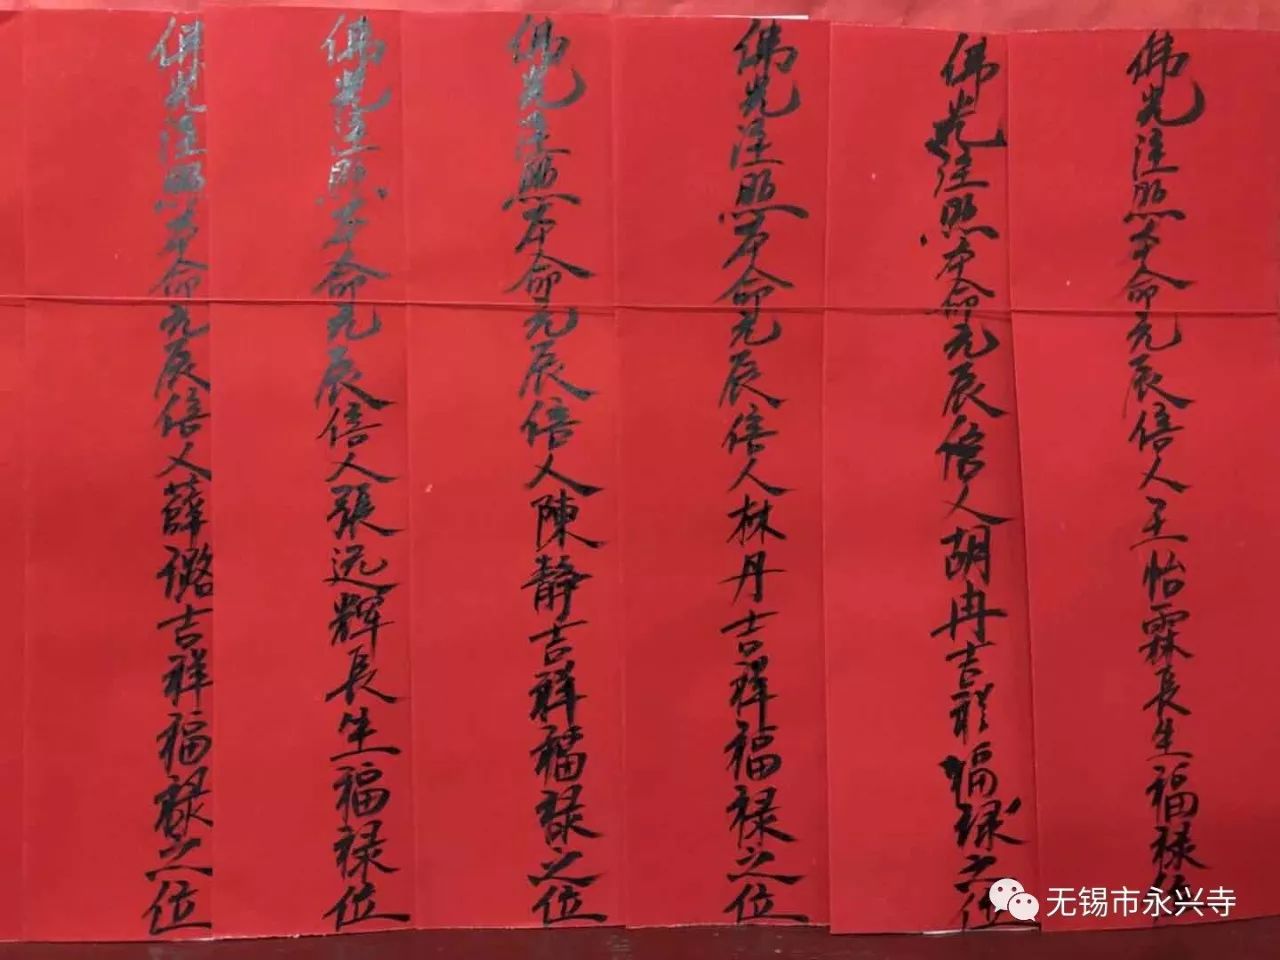 佛光注照本命元辰信人王怡霖長生福禄位
佛光注照本命元辰信人胡冉吉祥福禄之位
佛光注照本命元辰信人林丹吉祥福禄之位
佛光注照本命元辰信人陳静吉祥福禄之位
佛光注照本命元辰信人張远辉長生福禄位
佛光注照本命元辰信人薛璐吉祥福禄之位
无锡市永兴寺